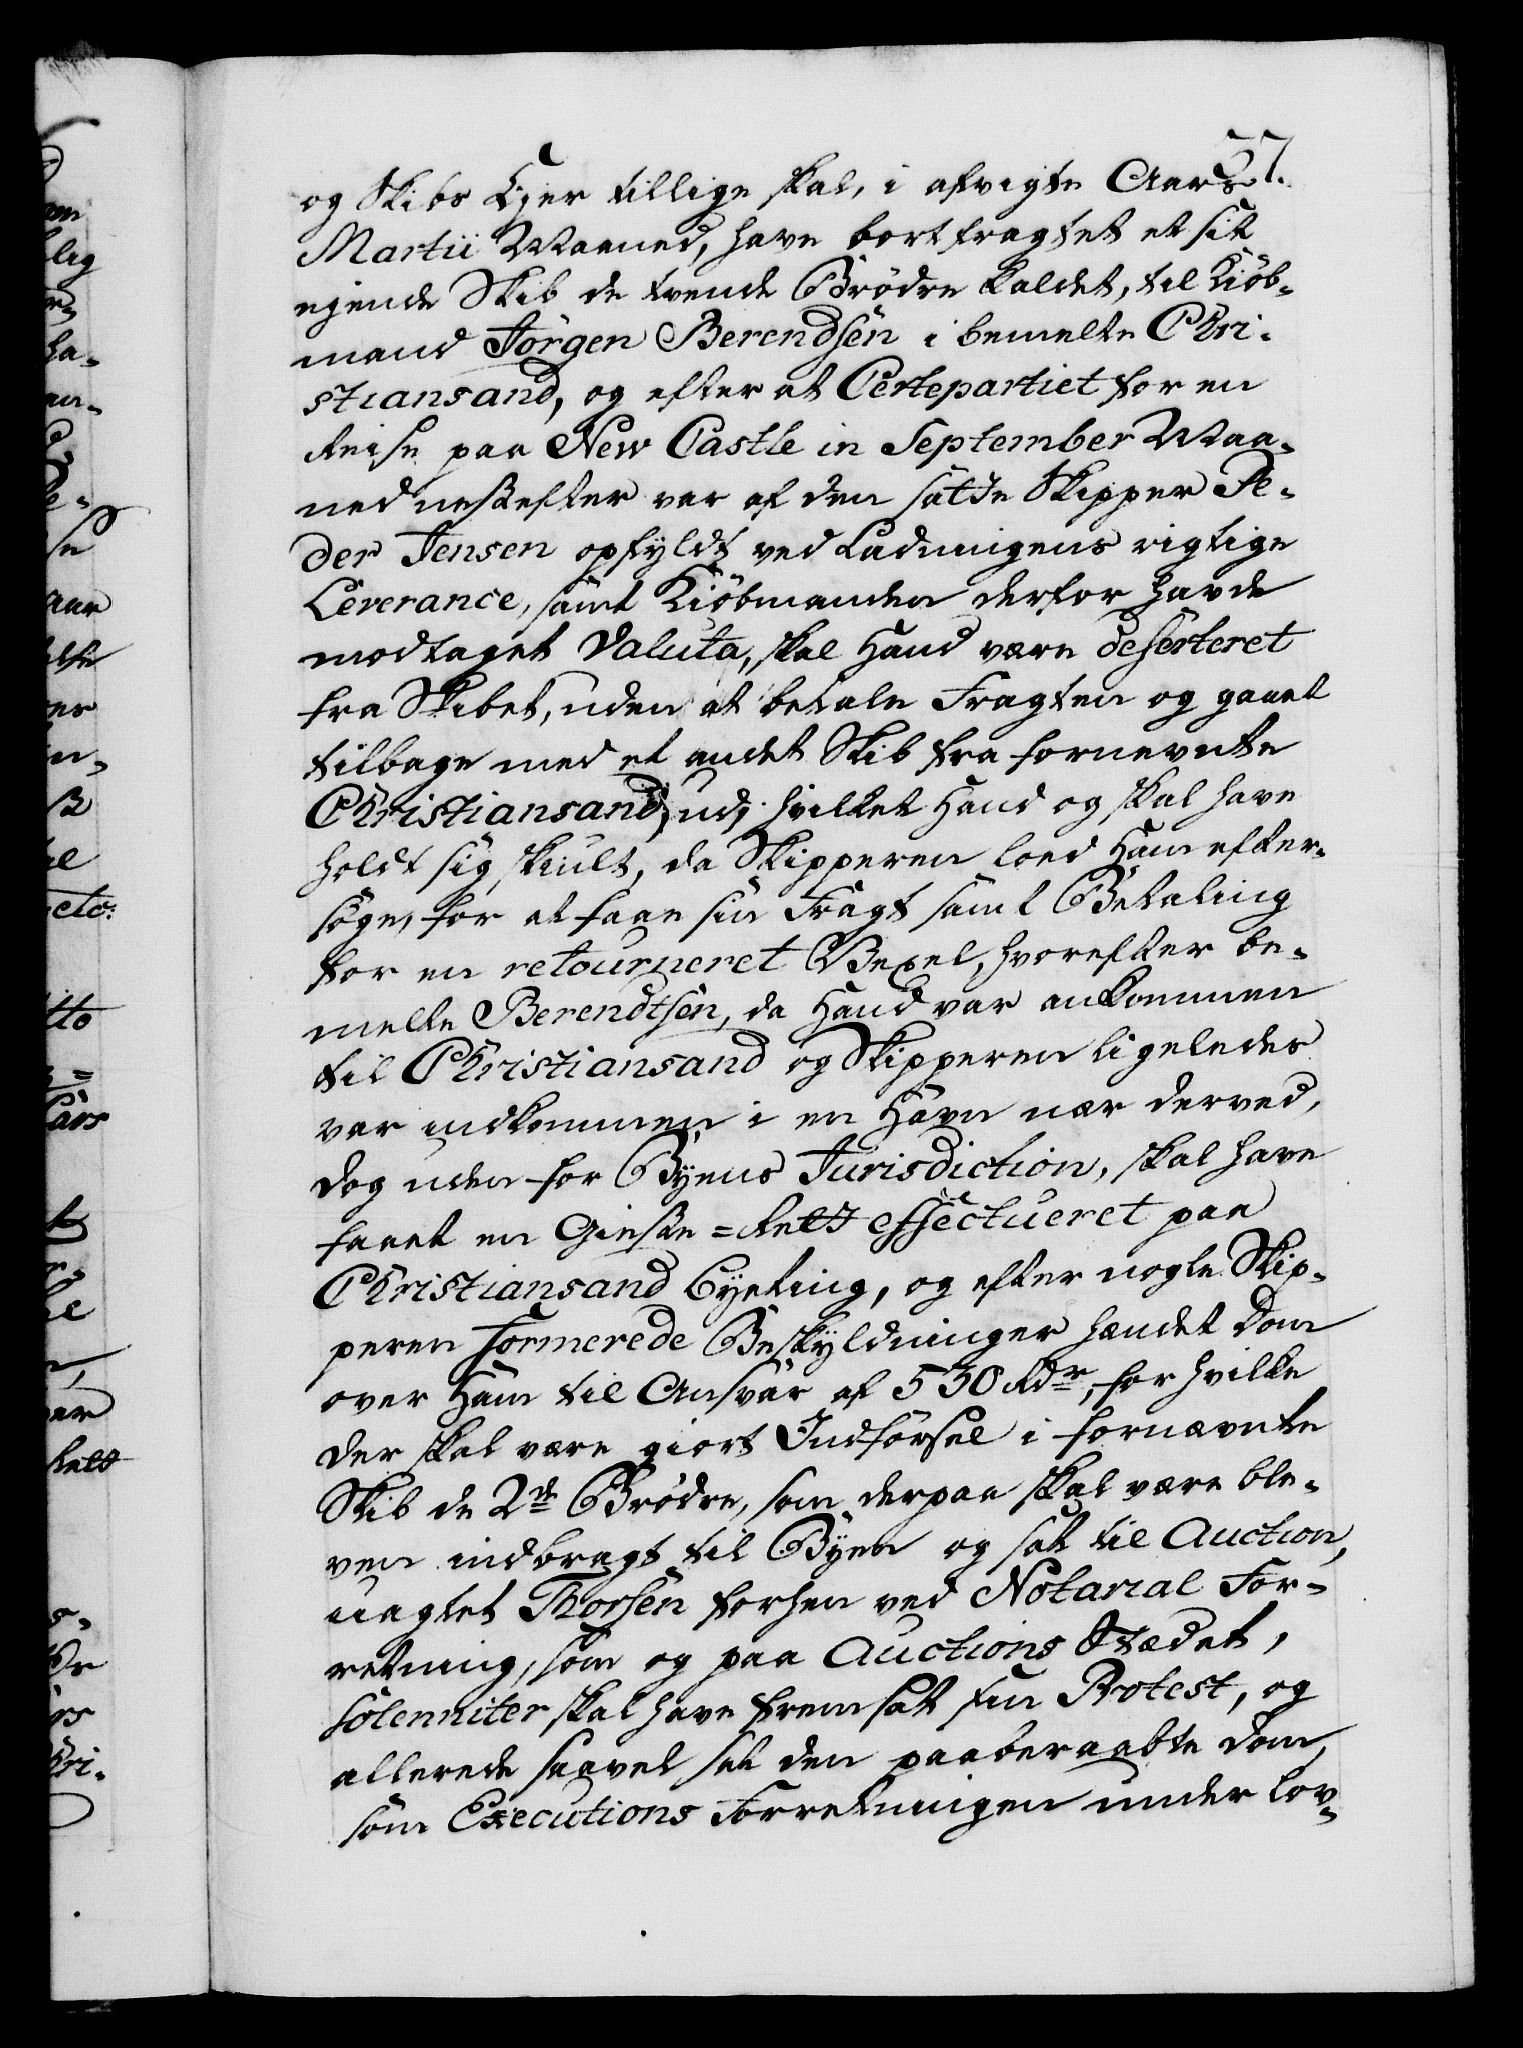 37.
og Skibs Ejer tillige skal, i afvigte Aars
Martii Maaned, have bortfragtet et sit
ejende Skib de tvende Brødre kaldet, til Kiöb-
mand Jörgen Berendsen i bemelte Chri-
stiansand, og efter at Certepartiet for en
Reise paa New Castle in September Maa-
ned nestefter var af den satte Skipper Pe-
der Jensen opfyldt ved Ladningens rigtige
Leverance, samt Kiöbmanden derfor havde
modtaget Valuta, skal Hand være deserteret
fra Skibet, uden at betale Fragten og gaaet
tilbage med et andet Skib fra fornevnte
Christiansand, udj hvilket Hand og skal have
holdt sig skiult, da Skipperen loed Ham efter-
søge, for at faae sin Fragt samt Betaling
for en retourneret Vexel, hvorefter be-
melte Berendtsen, da Hand var ankommen
til Christiansand og Skipperen ligeledes
var indkommen i en Havn nær derved,
dog uden for Byens Jurisdiction, skal have
faaet en Gieste-Rett effectueret paa
Christiansand Byeting, og efter nogle Skip-
peren formerede Beskyldninger hændet Dom
over Ham til Ansvar af 530 Rdr, for hvilke
der skal være giort Indførsel i fornævnte
Skib de 2de Brødre, som derpaa skal være ble-
ven indbragt til Byen og sat til Auction,
uagtet Thorsen forhen ved Notarial For-
retning, som og paa Auctions Stædet,
solenniter skal have fremsat sin Protest, og
allerede saavel sat den paaberaabte Dom,
som Executions Forretningen under lov-